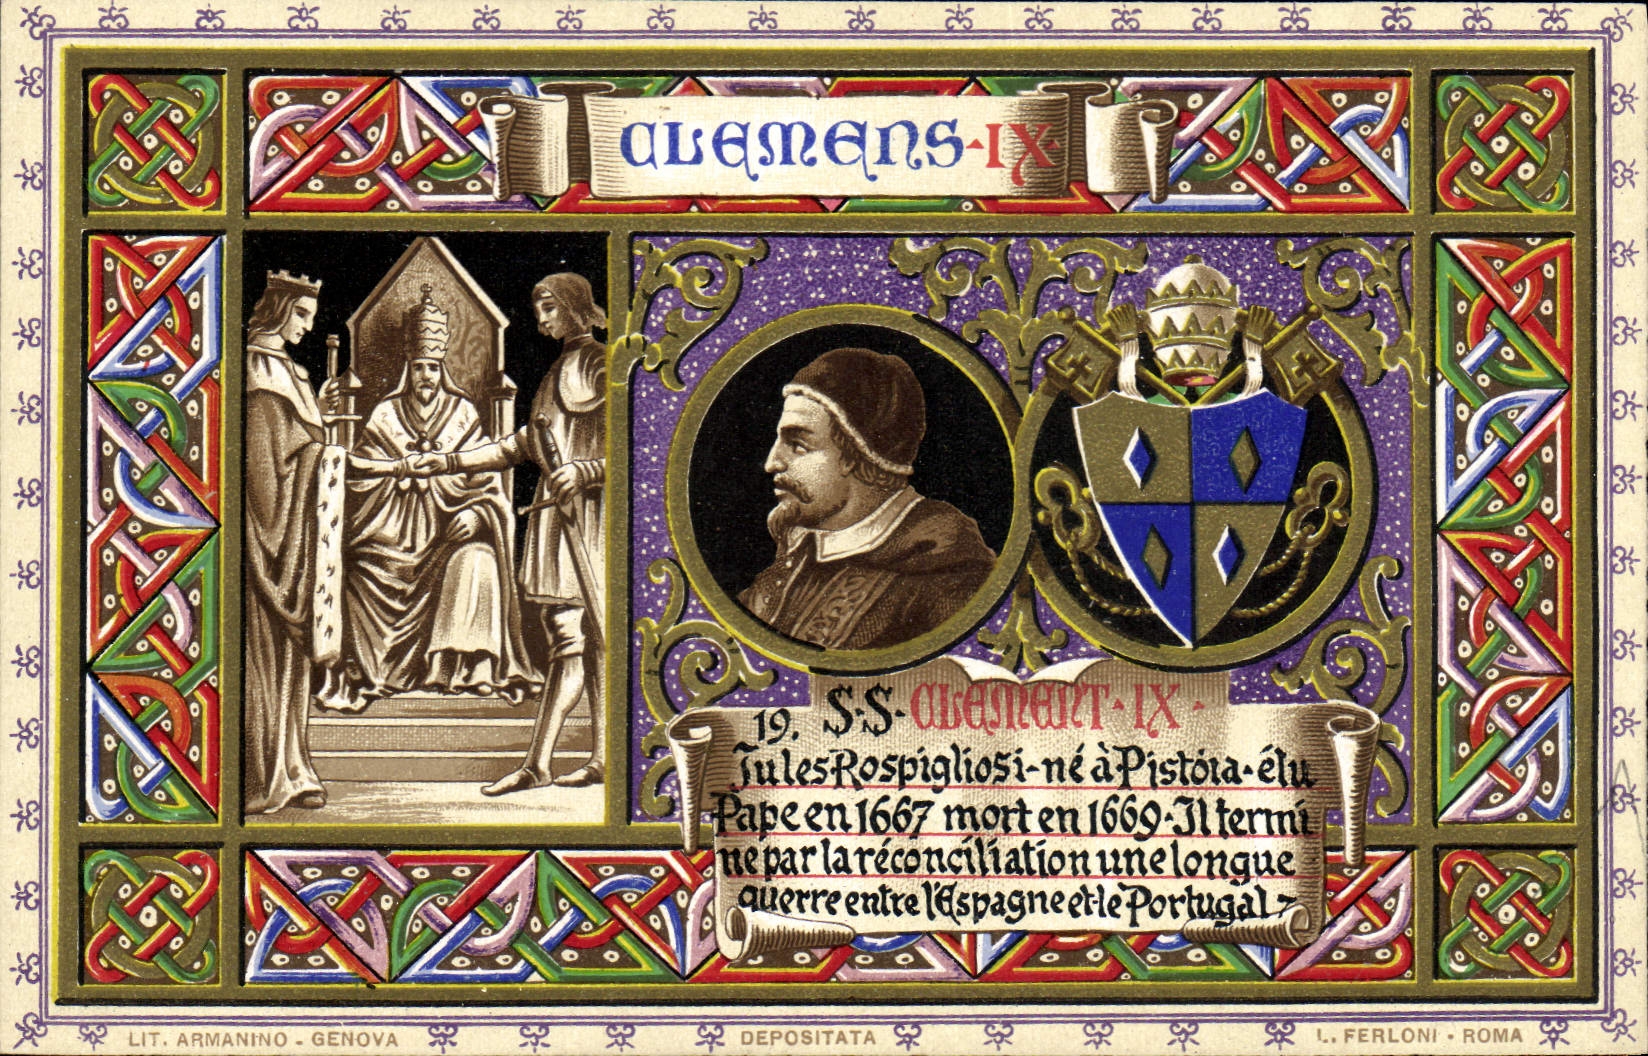 CLEMENS·IX·
19. S·S· CLEMENT·IX·
Jules Rospigliosi-né à Pistóia·élu
Pape en 1667 mort en 1669·Il termi
ne par la réconciliation une longue
guerre entre l'Espagne et le Portugal-
LIT. ARMANINO - GENOVA
DEPOSITATA
L. FERLONI · ROMA